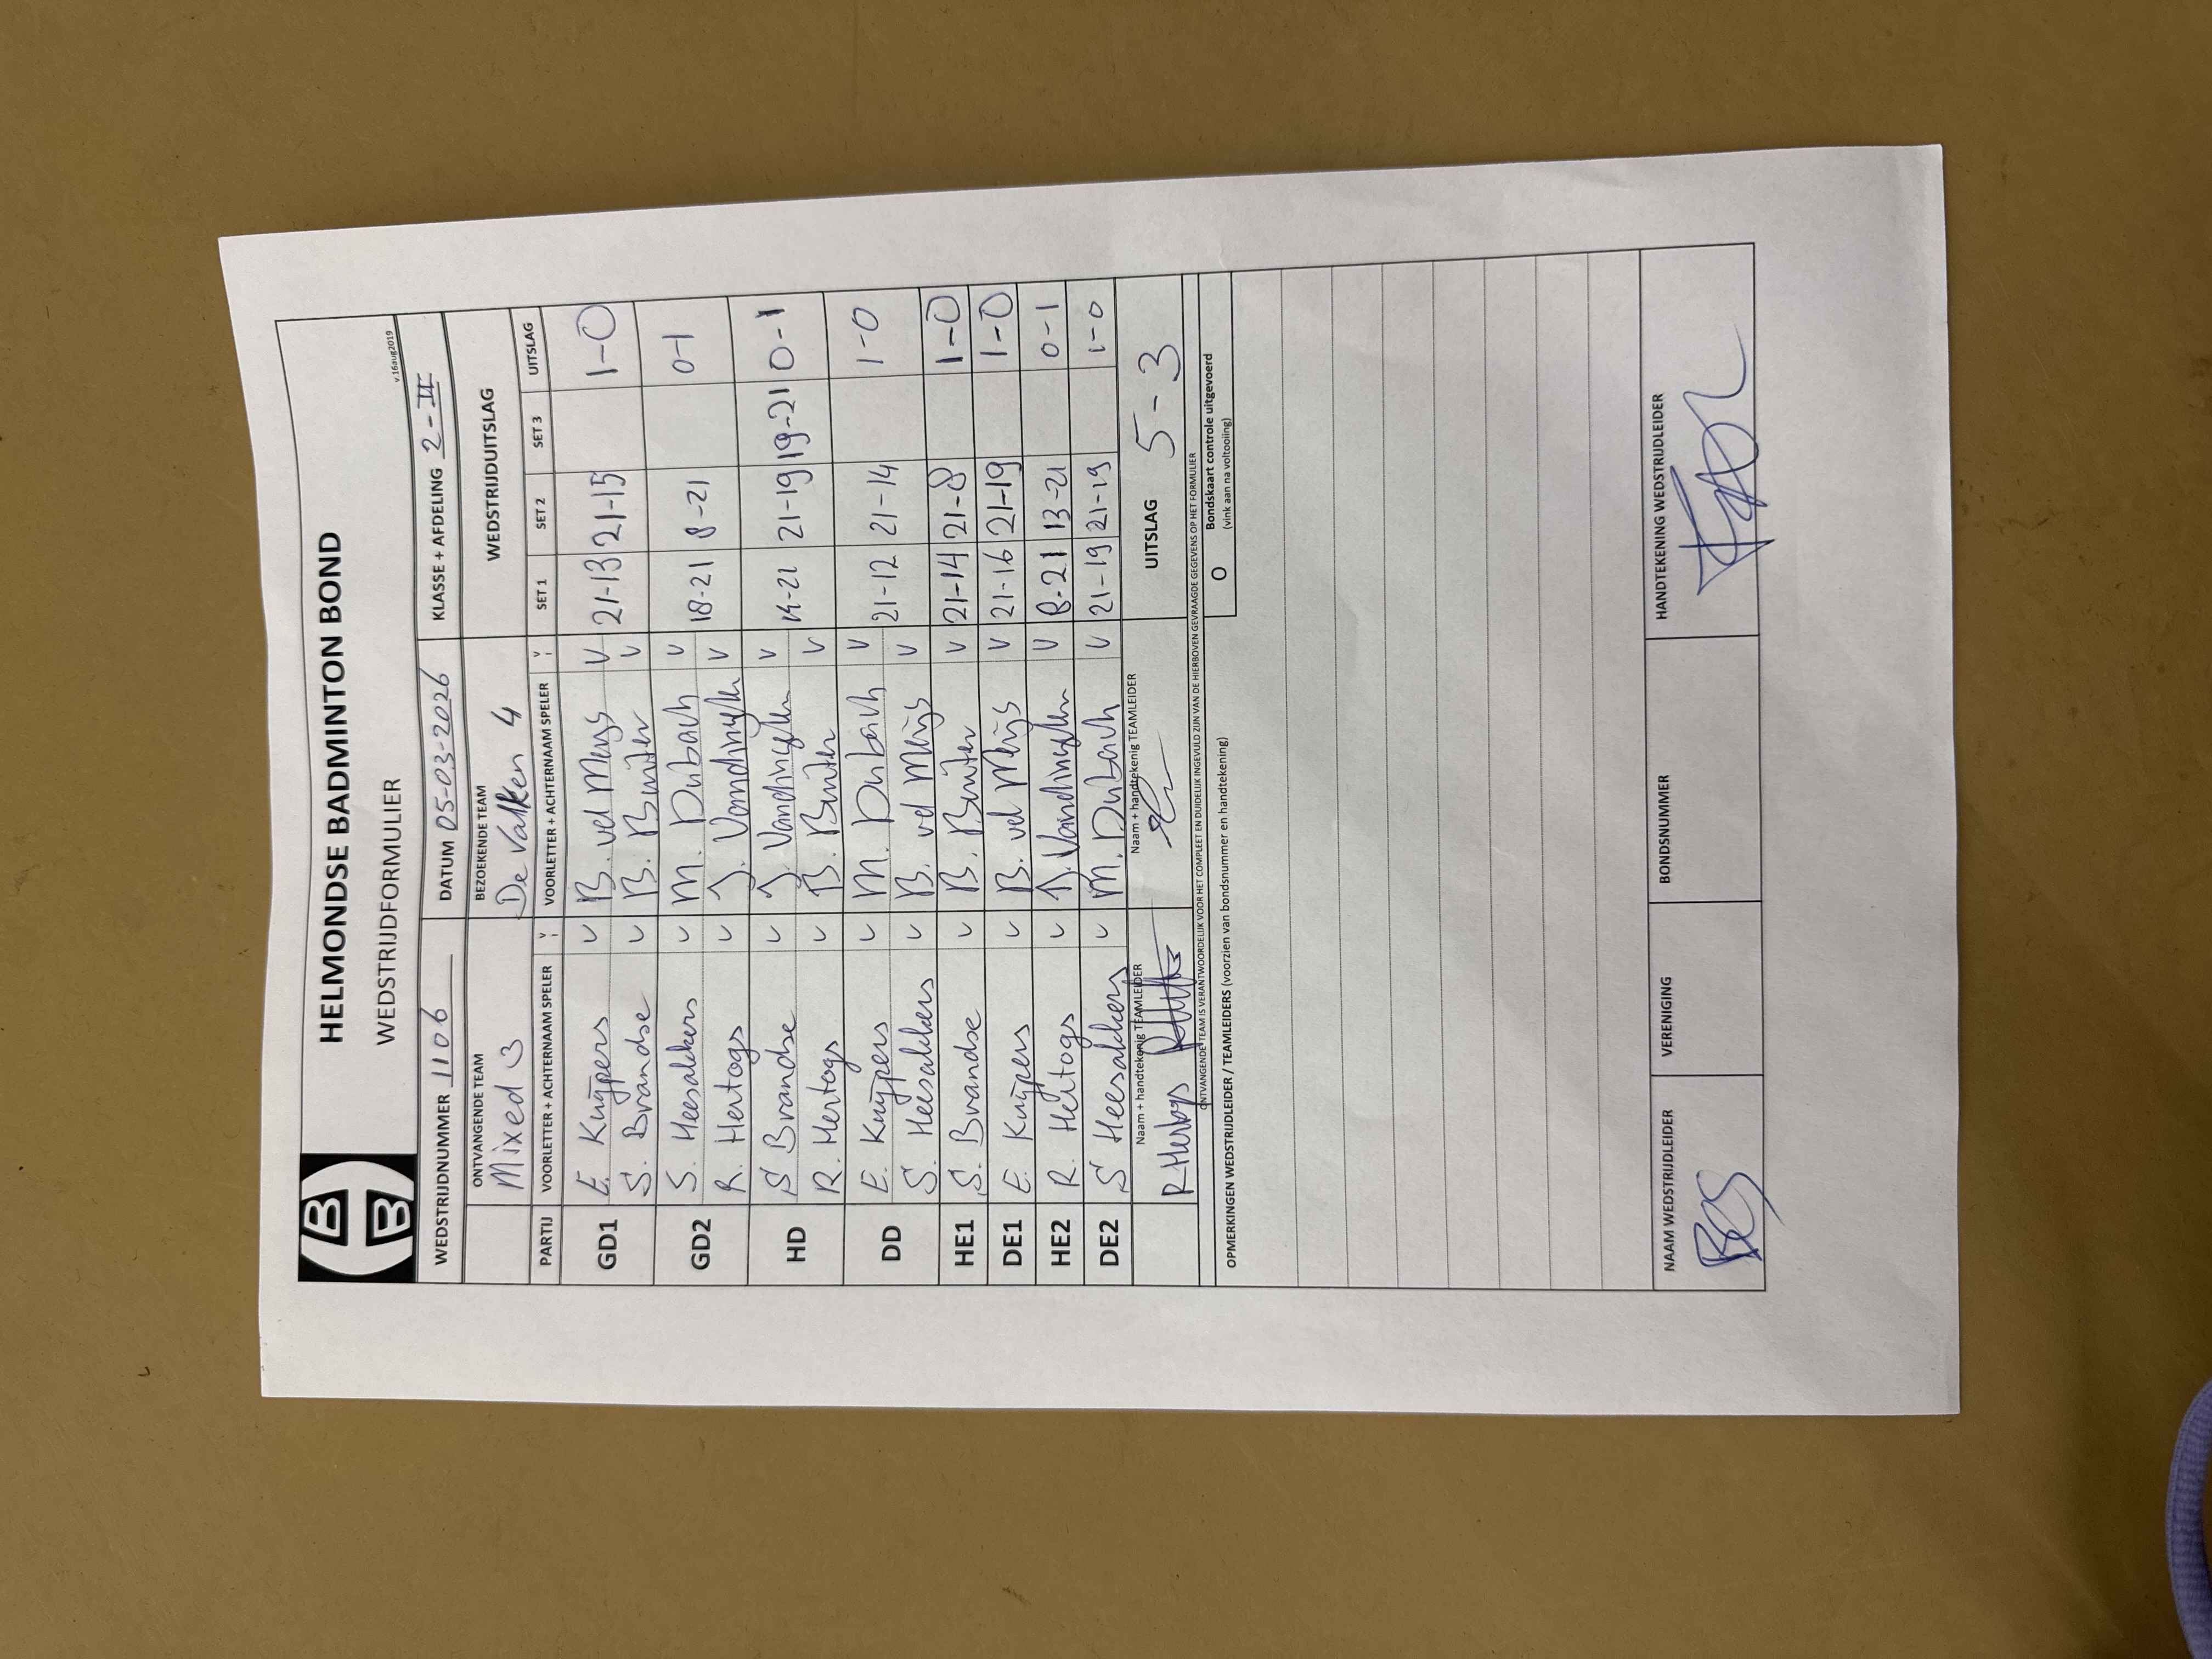 HELMONDSE BADMINTON BOND
WEDSTRIJDFORMULIER
v.16aug2019
WEDSTRIJDNUMMER 1106 DATUM 05-03-2026 KLASSE + AFDELING 2-II
ONTVANGENDE TEAM BEZOEKENDE TEAM WEDSTRIJDUITSLAG
Mixed 3 De Valken 4
PARTIJ VOORLETTER + ACHTERNAAM SPELER V VOORLETTER + ACHTERNAAM SPELER V SET 1 SET 2 SET 3 UITSLAG
GD1 E. Kuÿpers v B. vel Meijs v 21-13 21-15 1-0
S. Brandse v B. Buiter v
GD2 S. Heesakkers v M. Dubach v 18-21 8-21 0-1
R. Hertogs v J. v
HD S Brandse v J. v 14-21 21-19 19-21 0-1
R. Hertogs v B. Buiter v
DD E. Kuÿpers v M. Dubach v 21-12 21-14 1-0
S. Heesakkers v B. vel Meijs v
HE1 S. Brandse v B. Buiter v 21-14 21-8 1-0
DE1 E. Kuÿpers v B. vel Meijs v 21-16 21-19 1-0
HE2 R. Hertogs v J. v 8-21 13-21 0-1
DE2 S Heesakkers v M. Dubach v 21-19 21-19 1-0
Naam + handtekenig TEAMLEIDER Naam + handtekenig TEAMLEIDER
R Hertogs UITSLAG 5-3
ONTVANGENDE TEAM IS VERANTWOORDELIJK VOOR HET COMPLEET EN DUIDELIJK INGEVULD ZIJN VAN DE HIERBOVEN GEVRAAGDE GEGEVENS OP HET FORMULIER
OPMERKINGEN WEDSTRIJDLEIDER / TEAMLEIDERS (voorzien van bondsnummer en handtekening) O Bondskaart controle uitgevoerd
(vink aan na voltooiing)
NAAM WEDSTRIJDLEIDER VERENIGING BONDSNUMMER HANDTEKENING WEDSTRIJDLEIDER